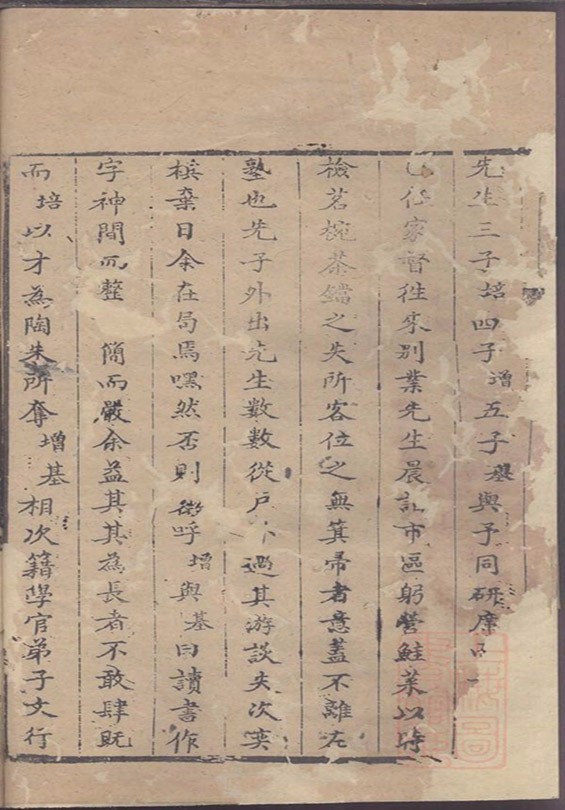 先生三子培四子增五子基與予同研席
家督往來別業先生晨詣市區躬營鮭菜以時
檢茗椀茶鐺之失所客位之無箕帚者意蓋不離左
塾也先子外出先生數數從戶外過其游談失次奕
棋棄日余在局焉嘿然否則微呼增與基曰讀書作
字神閒而整簡而嚴余益其其為長者不敢肆既
而培以才為陶朱所奪增基相次籍學官弟子文行